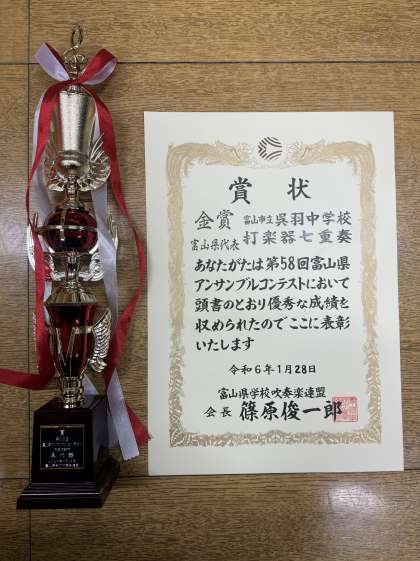 賞状
金賞 富山市立呉羽中学校
富山県代表 打楽器七重奏
あなたがたは第58回富山県
アンサンブルコンテストにおいて
頭書のとおり優秀な成績を
収められたのでここに表彰
いたします
令和6年1月28日
富山県学校吹奏楽連盟
会長 篠原俊一郎